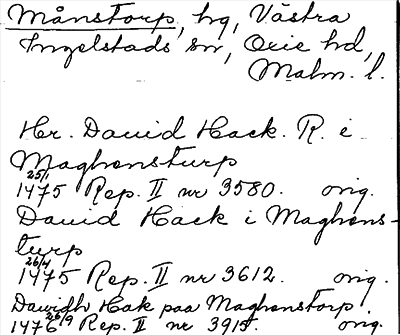 Månstorp, hg, Västra
Ingelstads sn, Oxie hd,
Malm. l.
Hr. David Hack. R. i
Maghensturp
25/1
1475 Rep. II nr 3580. orig.
David Hack i Maghens-
turp
26/4
1475 Rep. II nr 3612. orig.
Dawidh Hak paa Maghenstorp
26/9
1476 Rep. II nr 3915. orig.